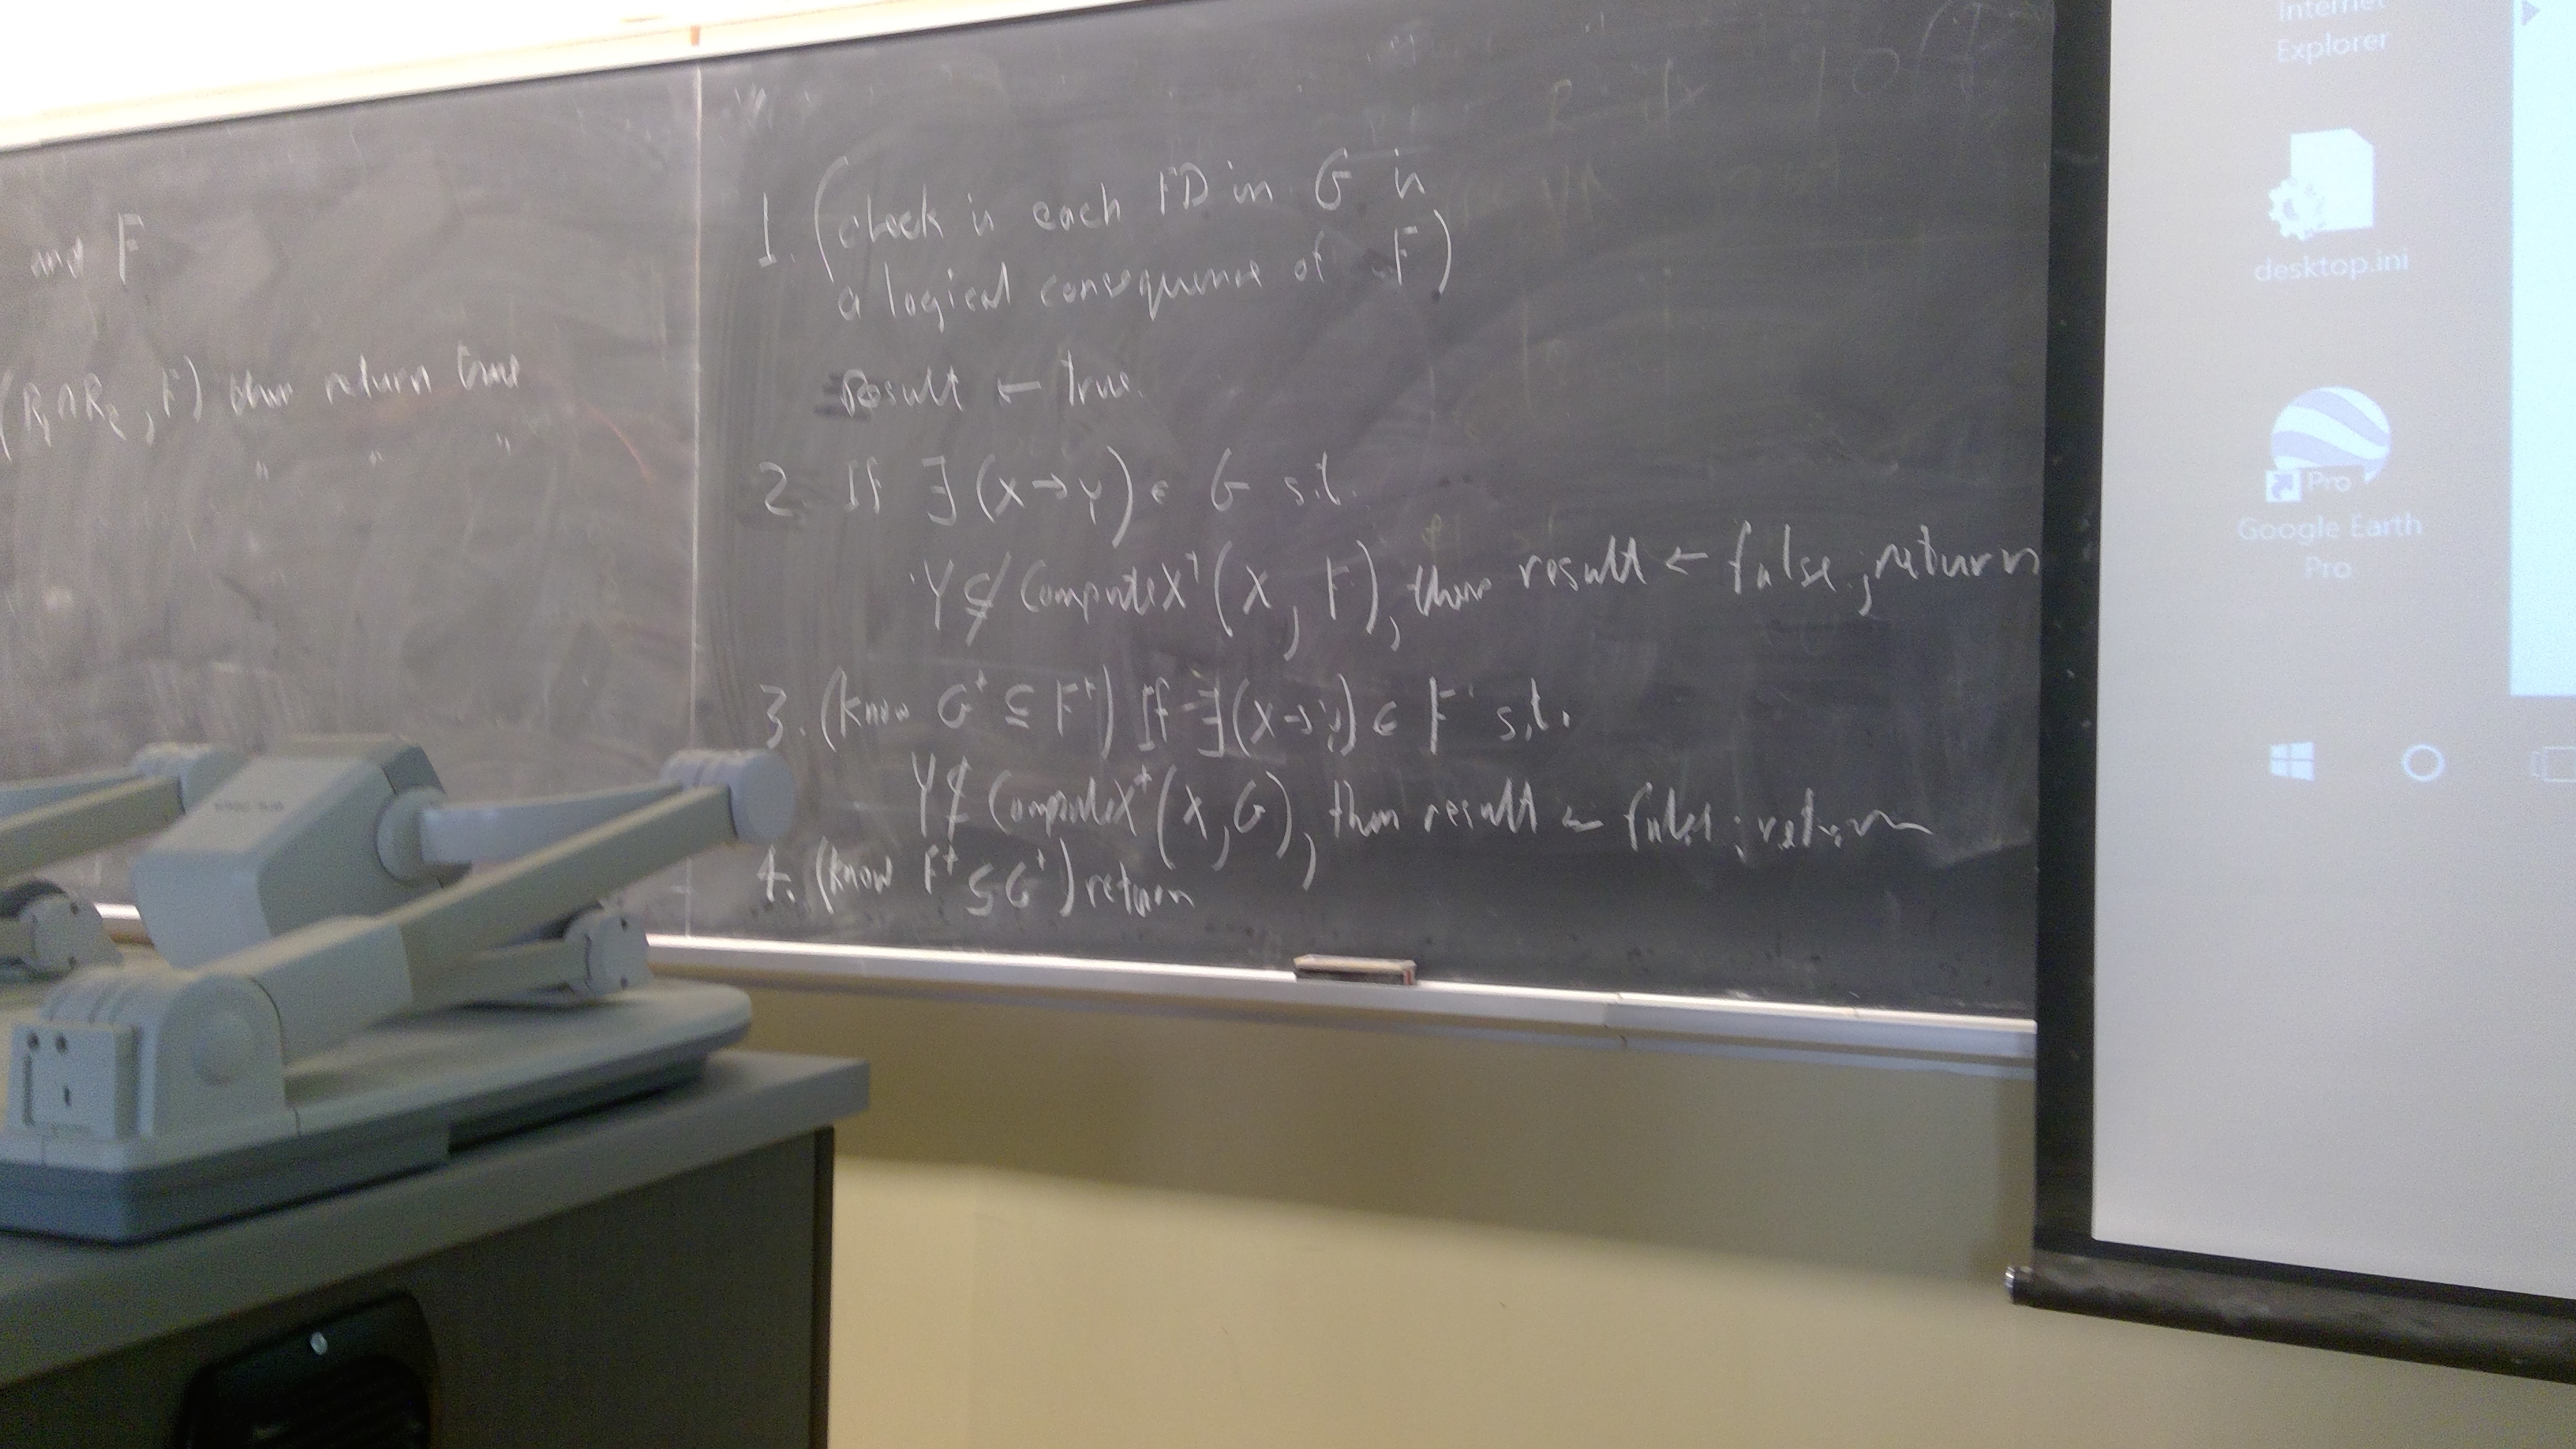 and F
(R₁∩R₂, F) then return true
" " "
1. (check is each FD in G is
a logical consequence of F)
Result ← true
2. If ∃(X→Y) ∈ G s.t.
Y ⊈ ComputeX⁺(X, F), then result ← false; return
3. (know G⁺ ⊆ F⁺) If ∃(X→Y) ∈ F s.t.
Y ⊈ ComputeX⁺(X, G), then result ← false; return
4. (know F⁺ ⊆ G⁺) return
Internet
Explorer
desktop.ini
Pro
Google Earth
Pro